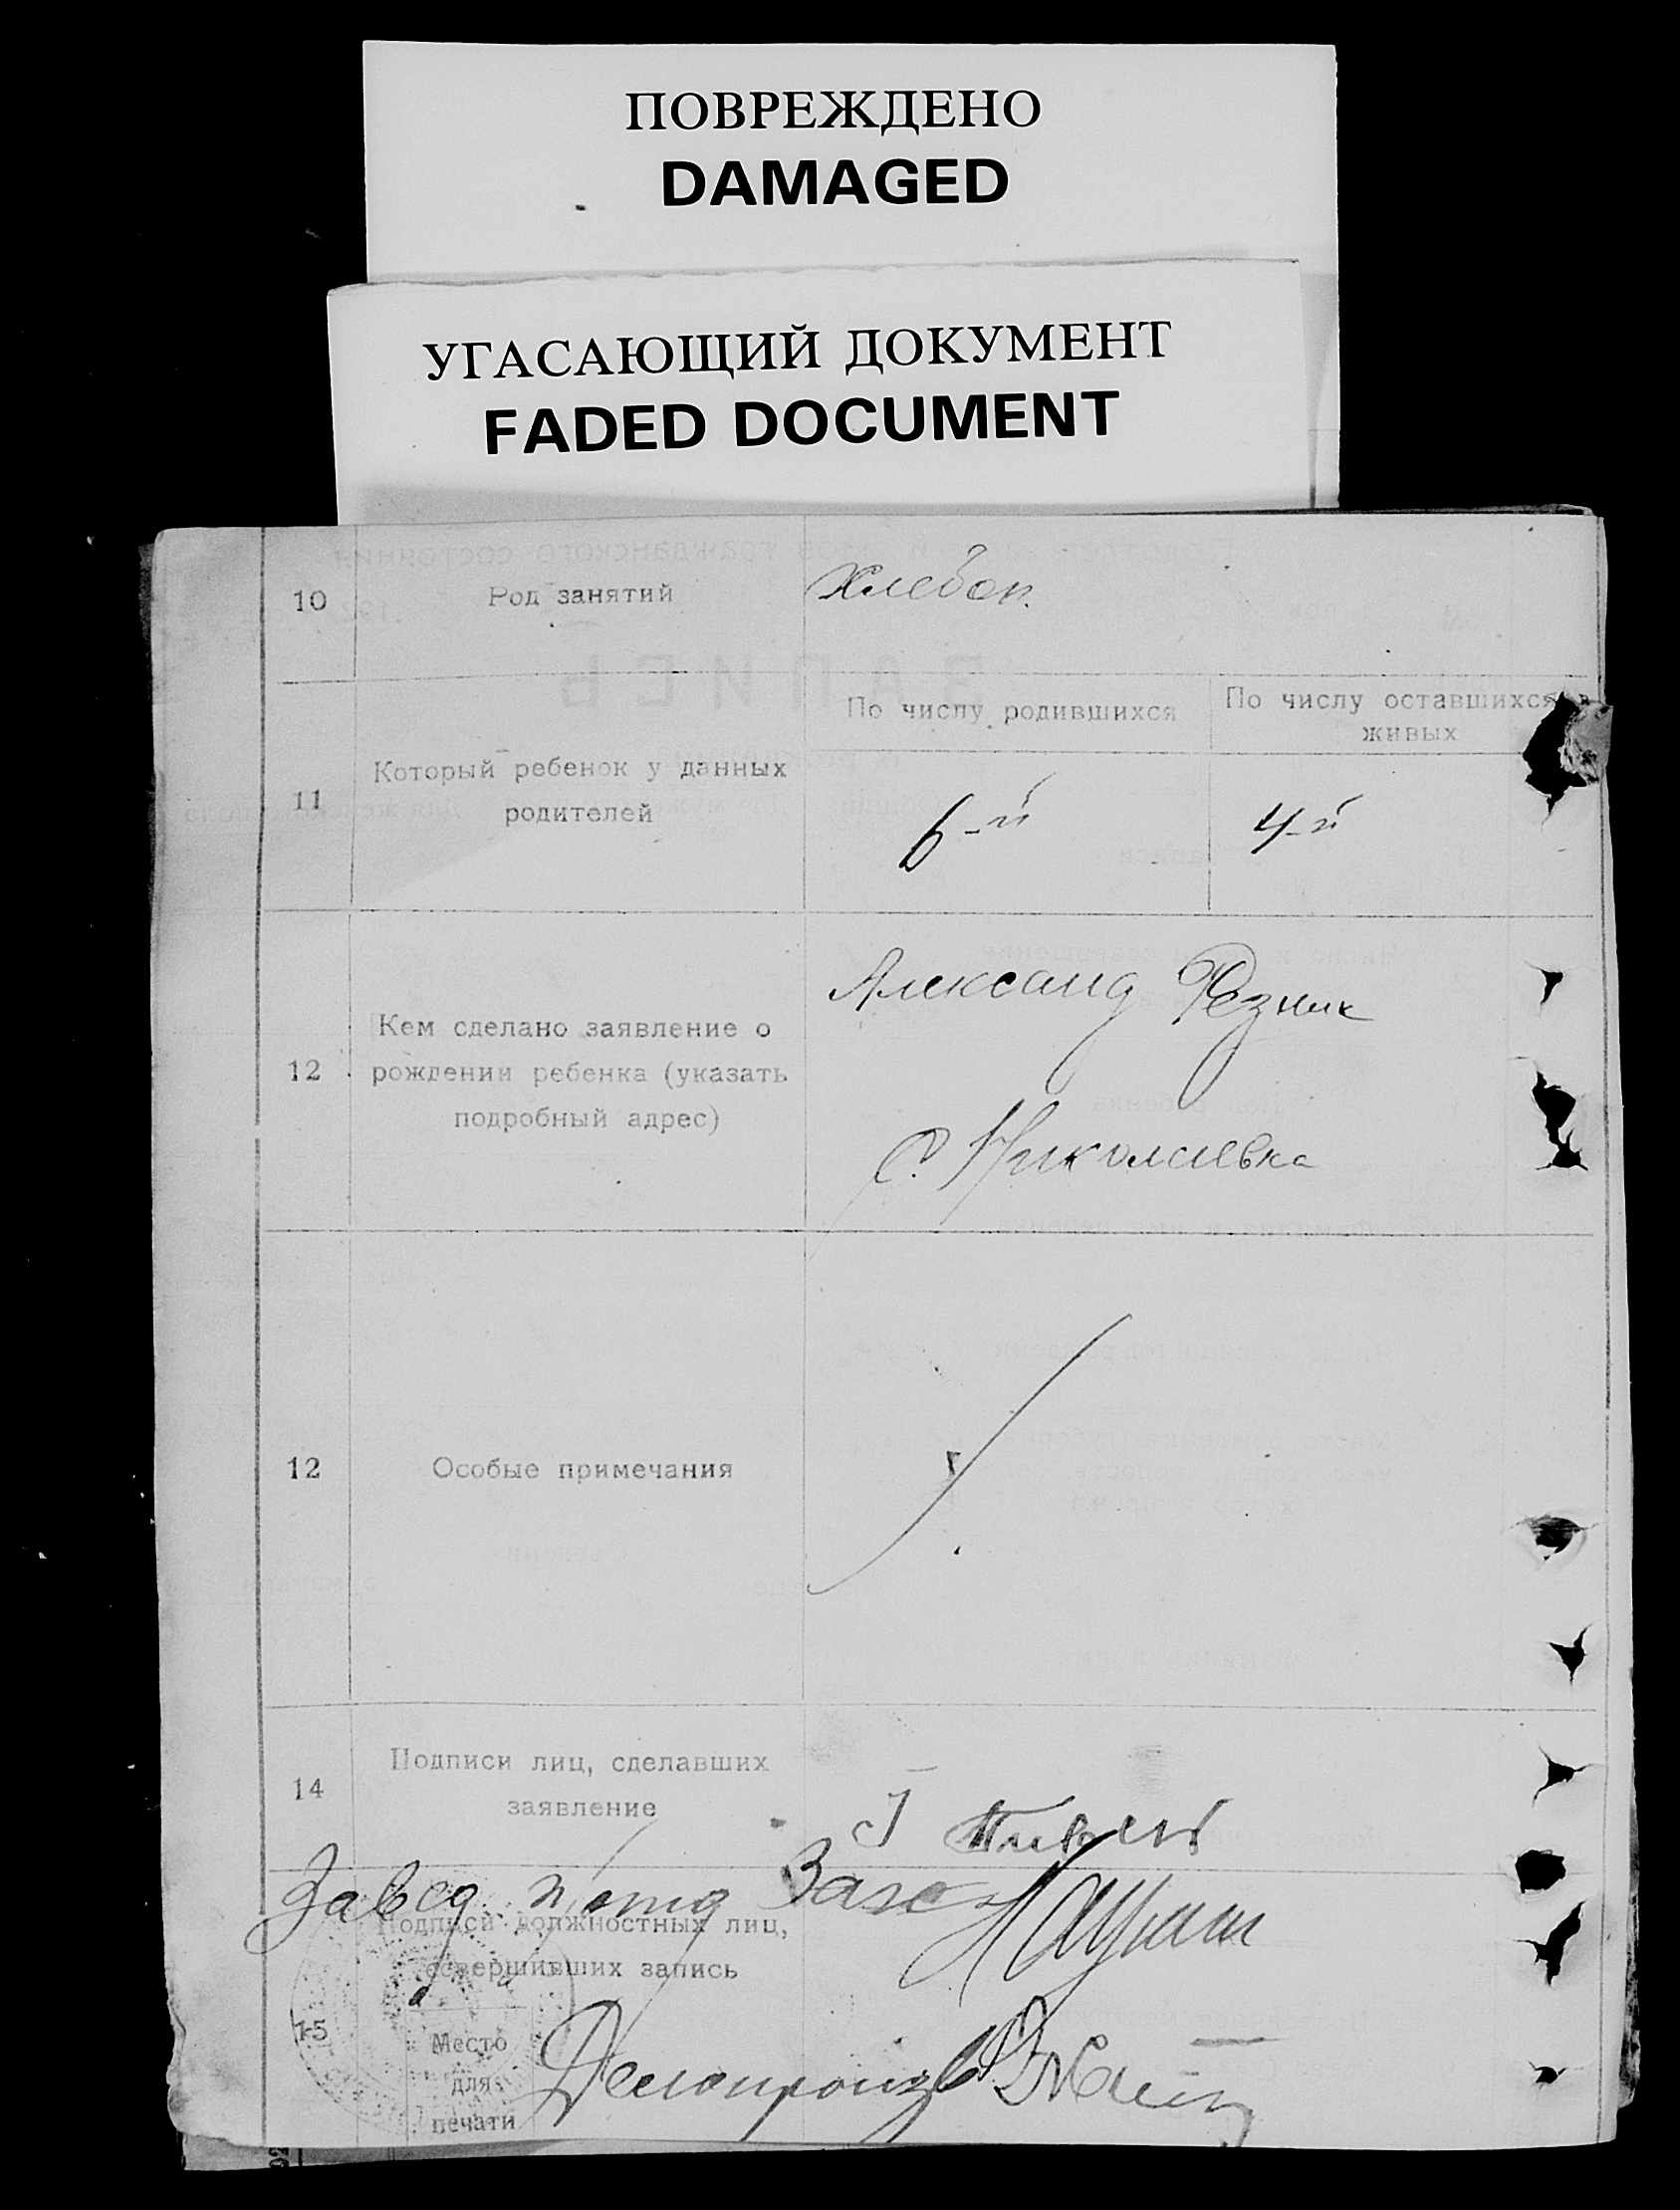 ПОВРЕЖДЕНО
DAMAGED
УГАСАЮЩИЙ ДОКУМЕНТ
FADED DOCUMENT
10 Род занятий Хлебоп.
По числу родившихся По числу оставшихся в живых
11 Который ребенок у данных
родителей 6-й 4-й
Александ Резник
Кем сделано заявление о
12 рождении ребенка (указать
подробный адрес) с. Николаевка
12 Особые примечания
Подписи лиц, сделавших
14 заявление
Завед.
Подписи должностных лиц,
совершивших запись
15 Место
для
печати
Делопроизв